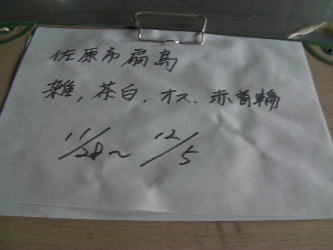 佐原市扇島
雑, 茶白, オス、赤首輪
11/28~12/5